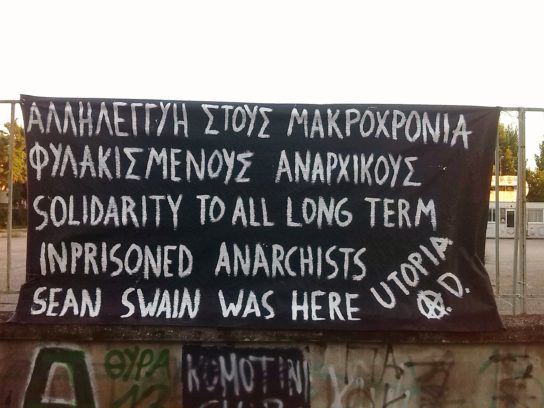 ΑΛΛΗΛΕΓΓΥΗ ΣΤΟΥΣ ΜΑΚΡΟΧΡΟΝΙΑ
ΦΥΛΑΚΙΣΜΕΝΟΥΣ ΑΝΑΡΧΙΚΟΥΣ
SOLIDARITY TO ALL LONG TERM
INPRISONED ANARCHISTS
SEAN SWAIN WAS HERE
UTOPIA
A.D.
ΘΥΡΑ
KOMOTINI